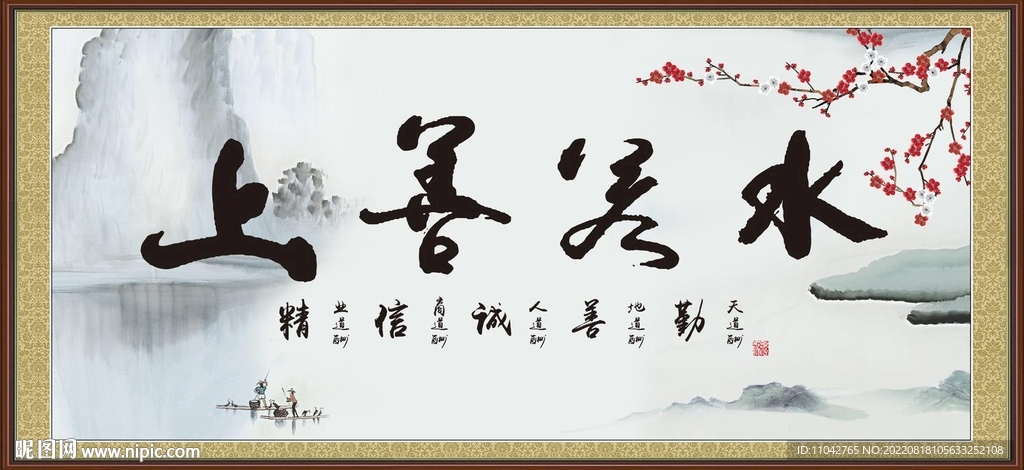 上善若水
天道酬勤 地道酬善 人道酬诚 商道酬信 业道酬精
昵图网 www.nipic.com
ID:11042765 NO:20220818105633252108